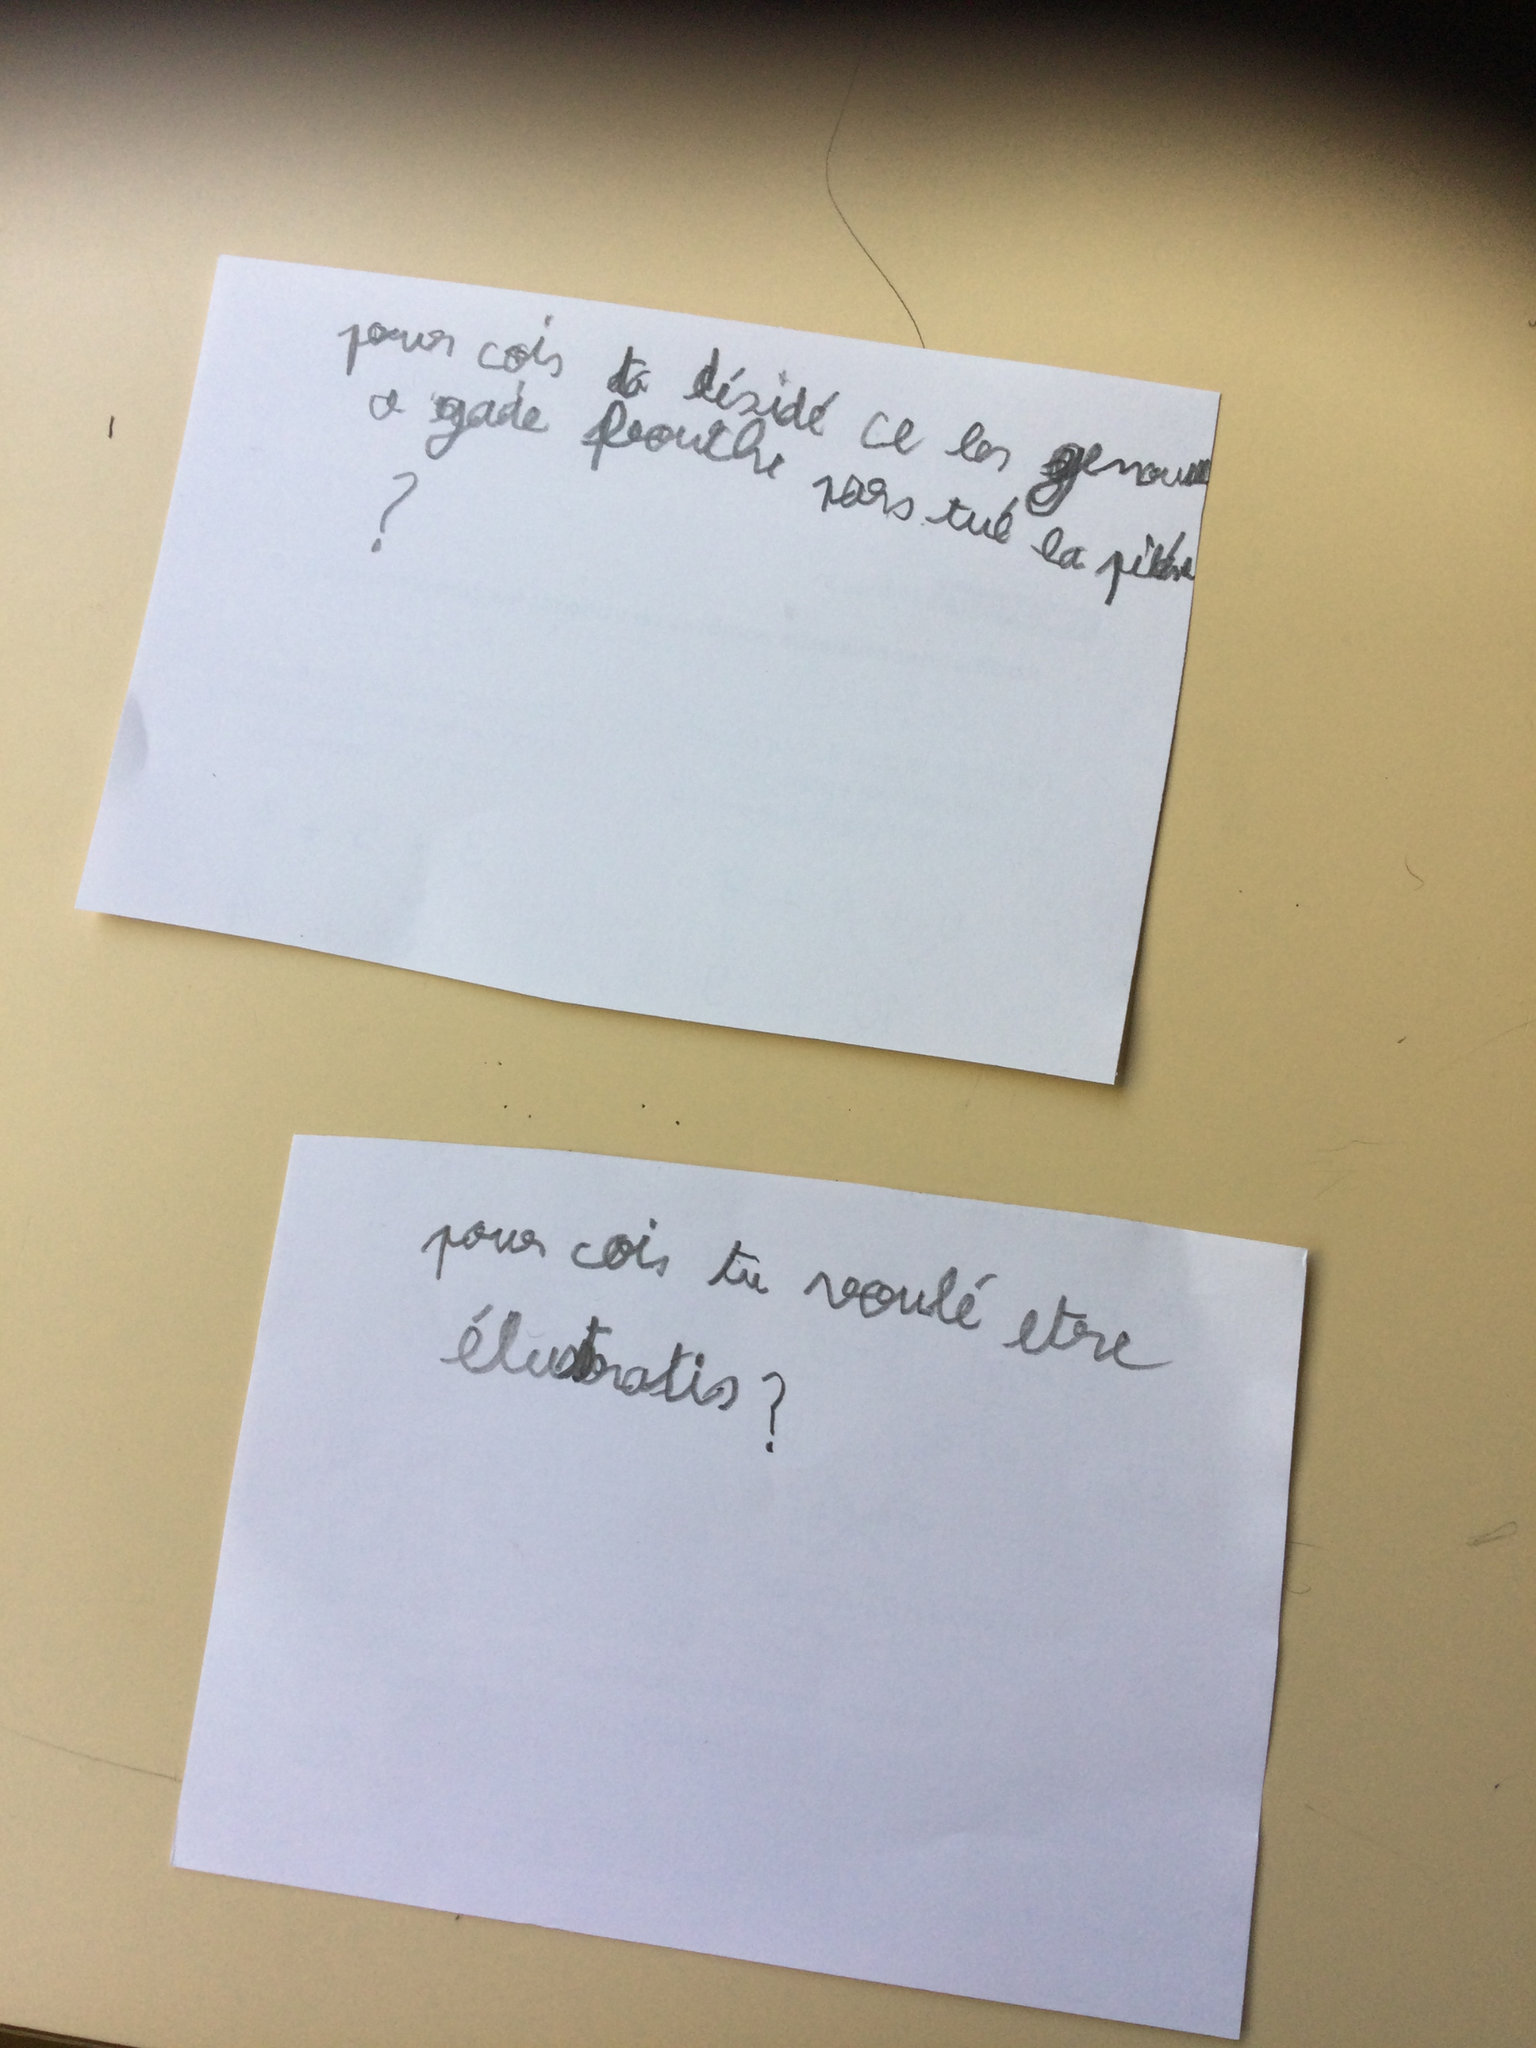 pour cois ta désidé ce les genoux
a gade provthe vars tué la
?
pour cois tu voulé etre
élustratis ?